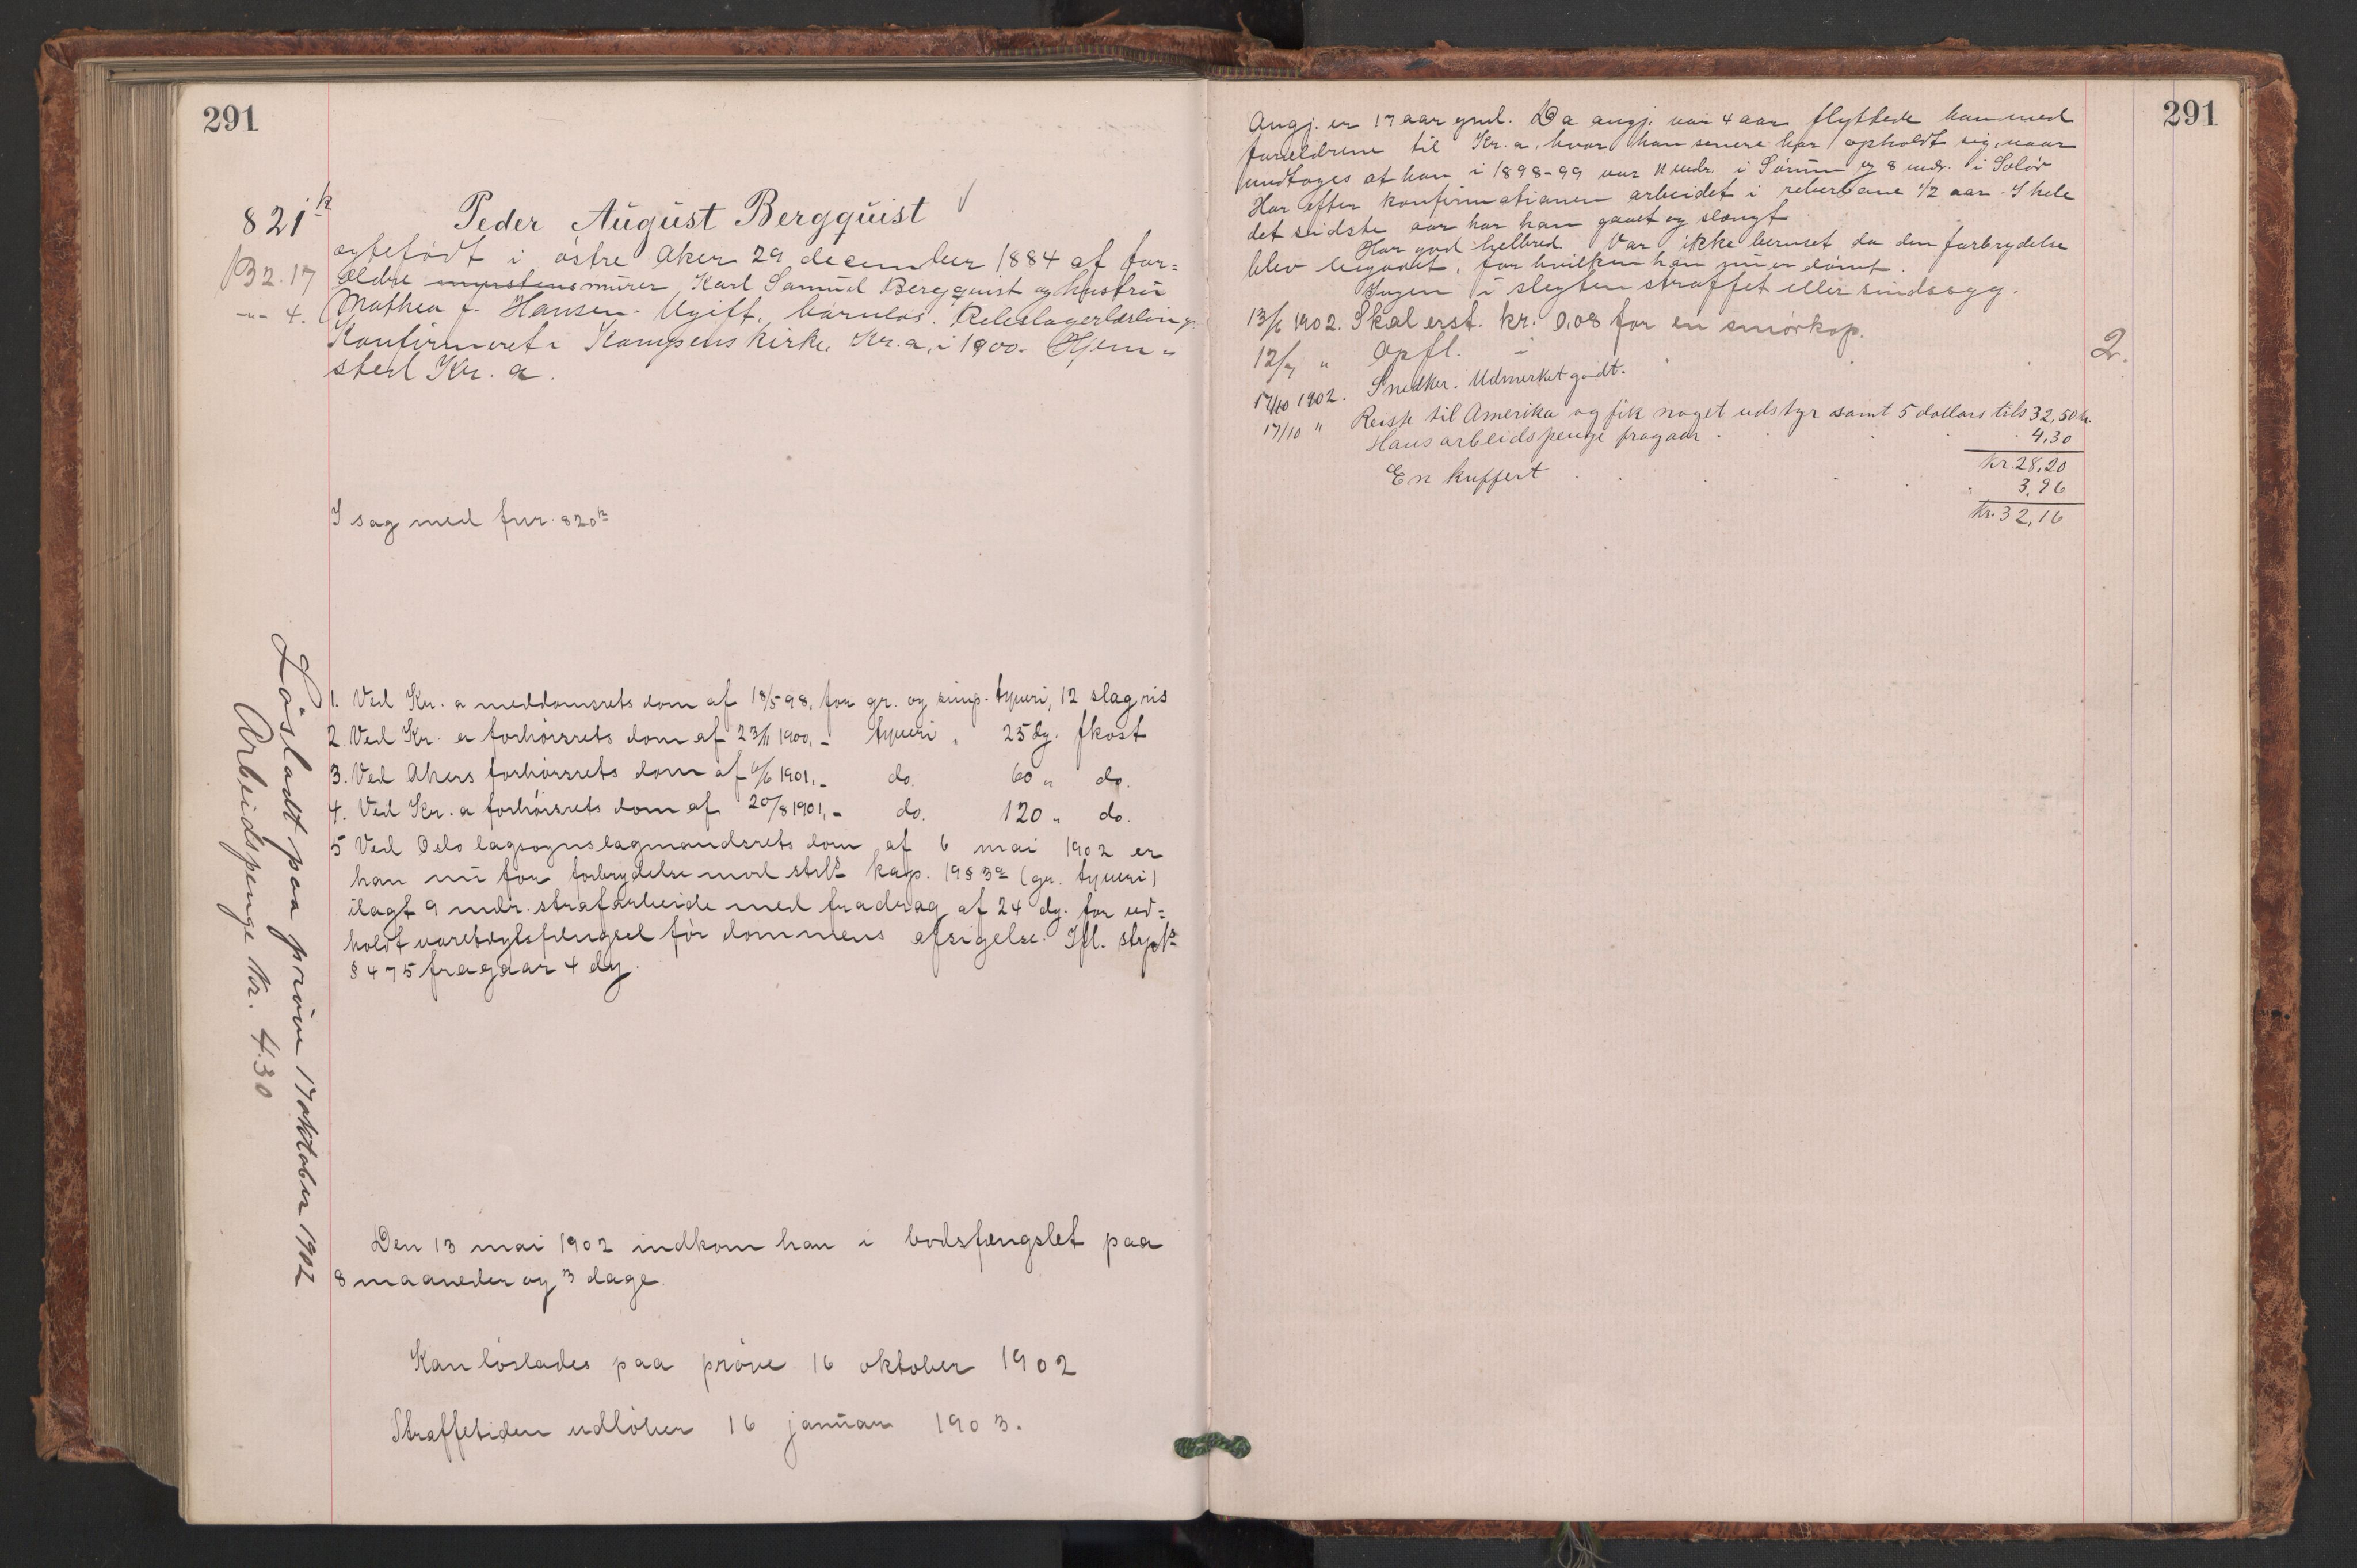 291
821 k
B2. 17
-"- 4.
Peder August Bergquist
ægtefødt i østre Aker 29 december 1884 af for=
ældre myrstensmurer Karl Samuel Bergquist og hustru
Mathea f. Hansen. Ugift, barnløs. Rebslagerlærling.
Konfirmeret i Kampens kirke, Kr.a, i 1900. Hjem=
sted Kr.a.
I sag med fur. 820 k
1. Ved Kr.a meddomsrets dom af 18/5 98, for gr. og simp. tyveri, 12 slag ris
2. Ved Kr.a forhørsrets dom af 23/11 1900, - tyveri " 25 dg. fkost
3. Ved Akers forhørsrets dom af 6/6 1901, - do. 60 " do.
4. Ved Kr.a forhørsrets dom af 20/8 1901, - do. 120 " do.
5 Ved Oslo lagsogns lagmandsrets dom af 6 mai 1902 er
han nu for forbrydelse mod strls kap. 19 § 3 (gr. tyveri)
ilagt 9 mdr. strafarbeide med fradrag af 24 dg. for ud=
holdt varetægtsfængsel før dommens afsigelse. Ifl. strpls
§ 475 fragaar 4 dg.
Den 13 mai 1902 indkom han i bodsfængslet paa
8 maaneder og 3 dage.
Kan løslades paa prøve 16 oktober 1902
Straffetiden udløber 16 januar 1903.
Løsladt paa prøve 17 oktober 1902
Arbeidspenge kr. 4.30
291
Angj. er 17 aar gml. Da angj. var 4 aar flyttede han med
forældrene til Kr.a, hvor han senere har opholdt sig, naar
undtages at han i 1898-99 var 11 mdr. i Sørum og 8 mdr. i Solør
Har efter konfirmationen arbeidet i reberbane 1/2 aar. I hele
det sidste aar har han gaaet og slængt
Har god helbred. Var ikke beruset da den forbrydelse
blev begaaet, for hvilken han nu er dømt.
Ingen i slegten straffet eller sindssyg.
13/6 1902. Skal erst. kr. 0,08 for en smørkop.
12/7 " Opfl. - 2.
17/10 1902. Snedker. Udmerket godt.
17/10 " Reiste til Amerika og fik noget udstyr samt 5 dollars tils 32,50 kr.
Hans arbeidspenge fragaar 4,30
kr. 28,20
En kuffert " 3,96
kr. 32,16